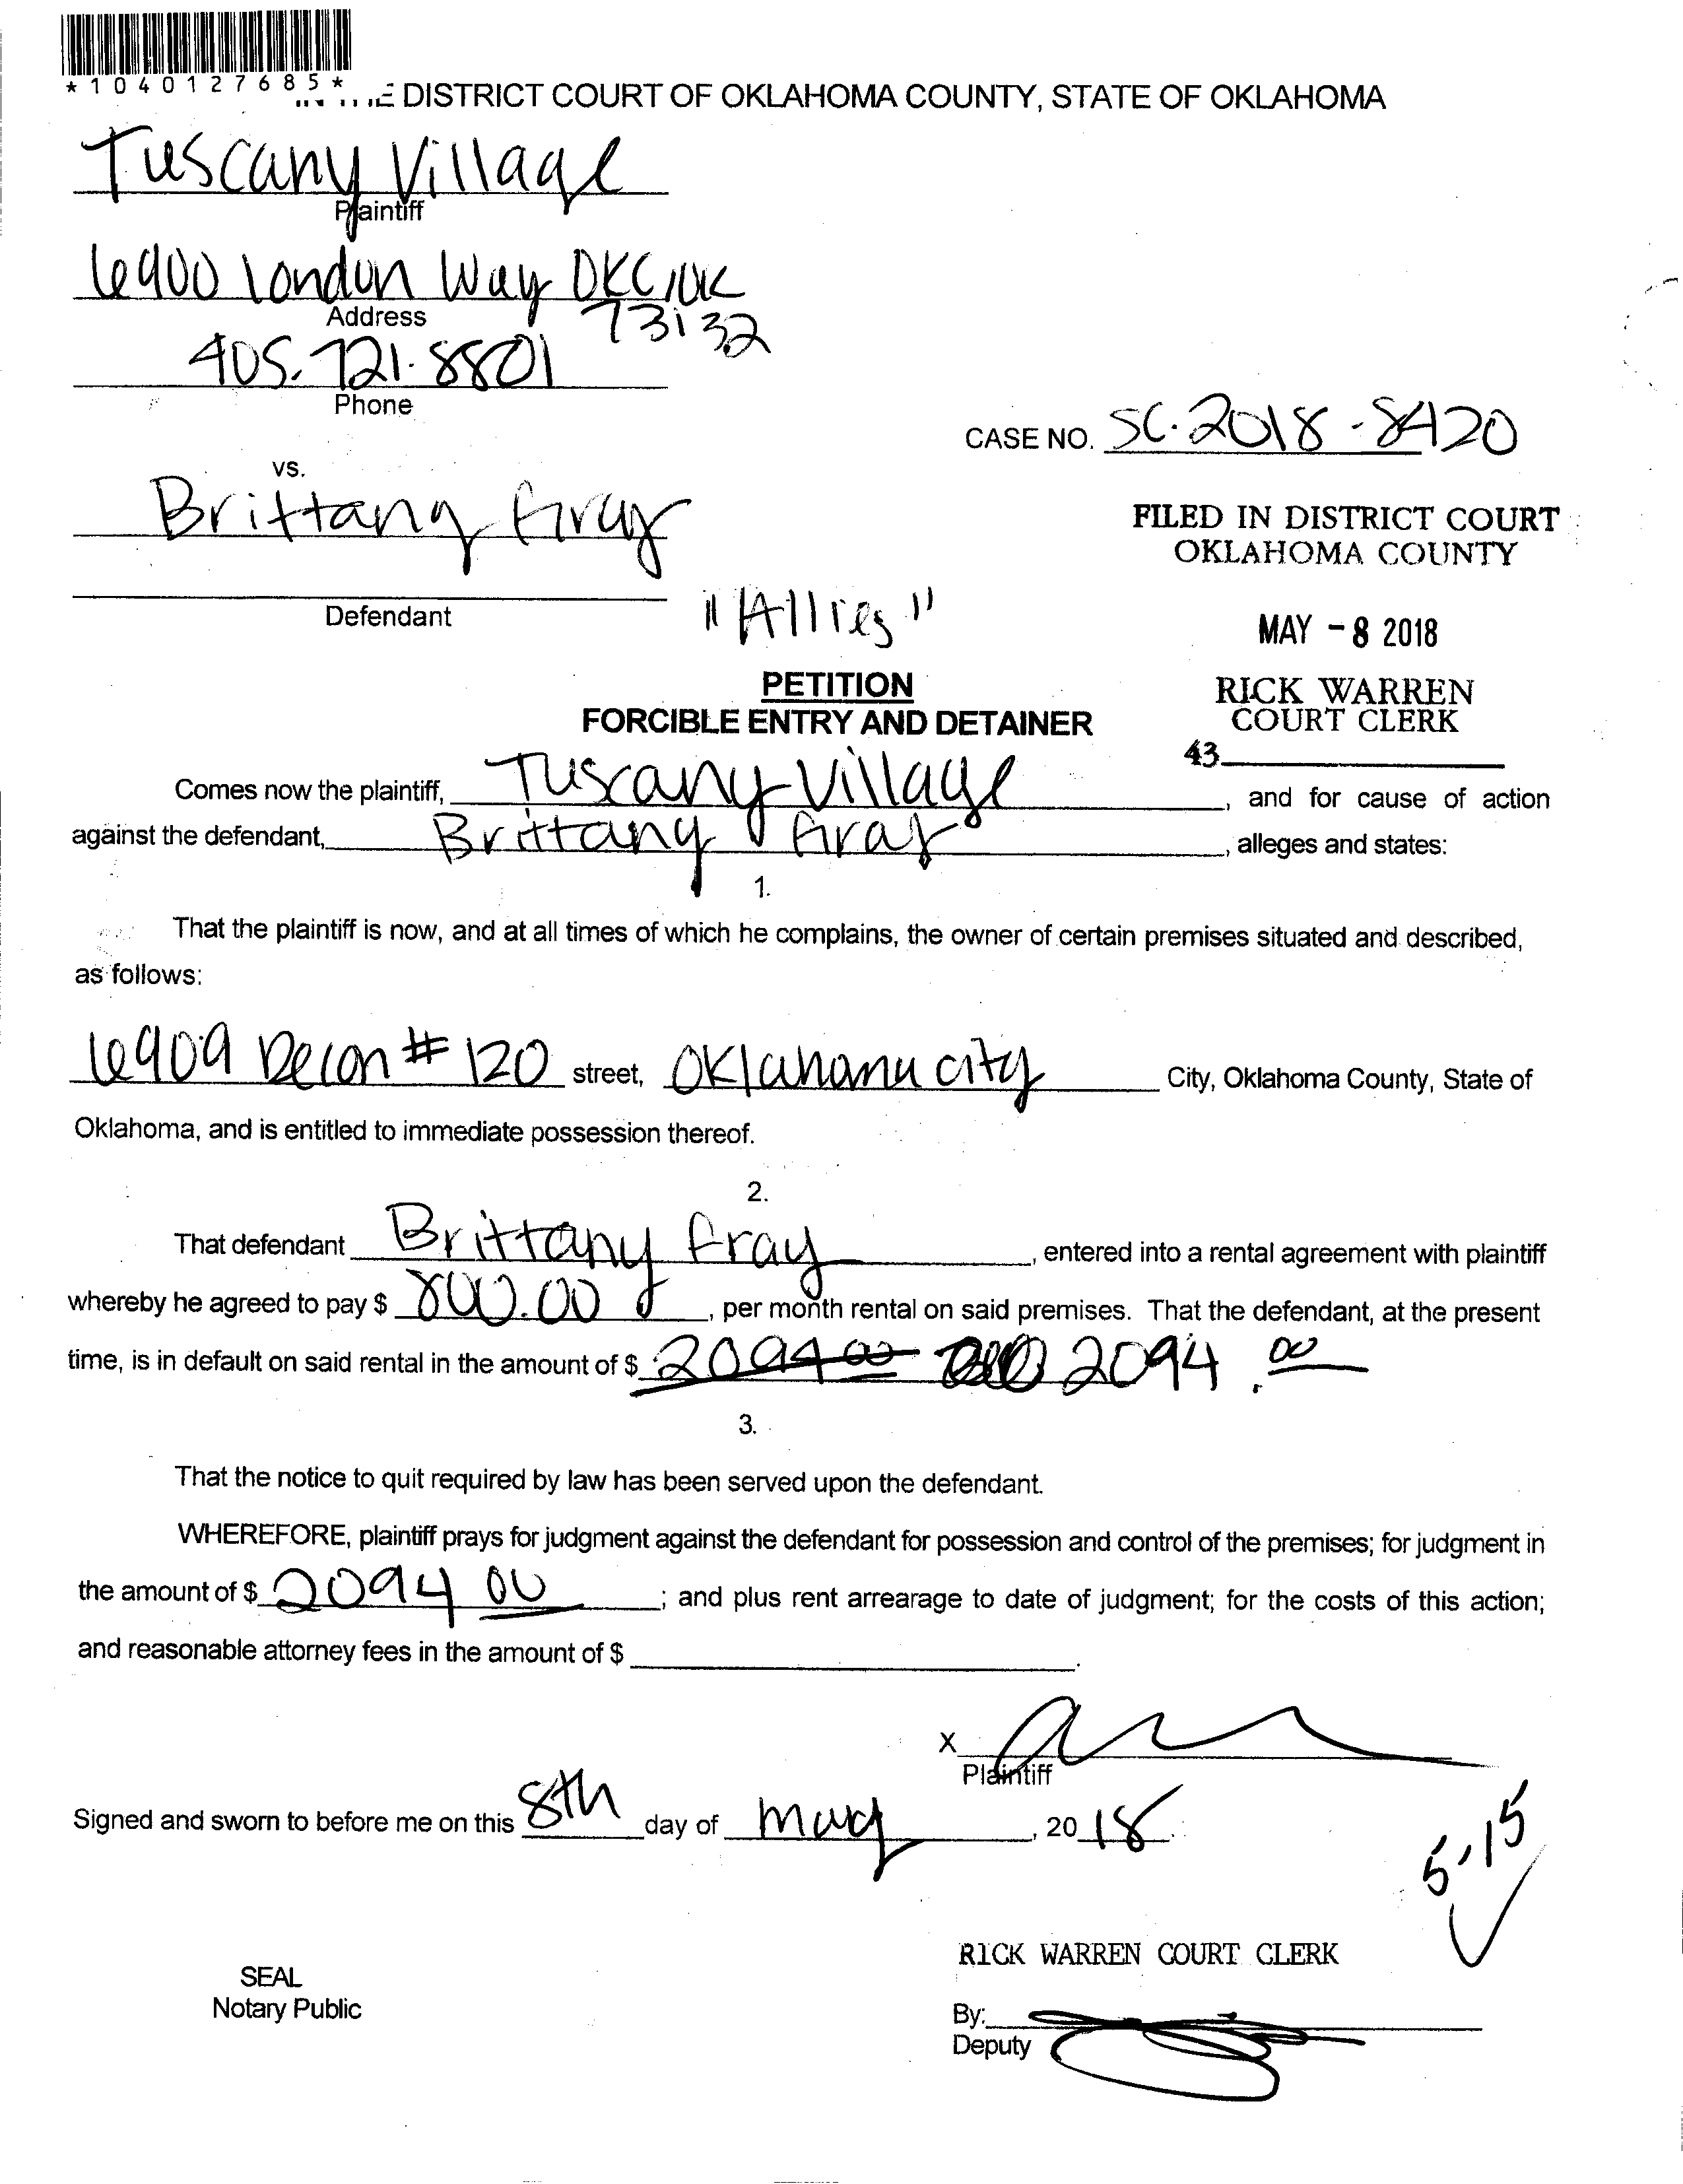 *1040127685*
DISTRICT COURT OF OKLAHOMA COUNTY, STATE OF OKLAHOMA
Tuscany Village
Plaintiff
6900 London Way OKC, OK
73132
Address
405.721.8801
Phone
CASE NO. SC-2018-8420
vs.
Brittany
FILED IN DISTRICT COURT
OKLAHOMA COUNTY
Defendant
"Allies"
MAY -8 2018
PETITION
FORCIBLE ENTRY AND DETAINER
RICK WARREN
COURT CLERK
43
Comes now the plaintiff, Tuscany Village, and for cause of action
against the defendant, Brittany, alleges and states:
1.
That the plaintiff is now, and at all times of which he complains, the owner of certain premises situated and described,
as follows:
6909 #120 street, Oklahoma city City, Oklahoma County, State of
Oklahoma, and is entitled to immediate possession thereof.
2.
That defendant Brittany, entered into a rental agreement with plaintiff
whereby he agreed to pay $ 800.00, per month rental on said premises. That the defendant, at the present
time, is in default on said rental in the amount of $ 2094 00 2094.00
3.
That the notice to quit required by law has been served upon the defendant.
WHEREFORE, plaintiff prays for judgment against the defendant for possession and control of the premises; for judgment in
the amount of $ 2094 00; and plus rent arrearage to date of judgment; for the costs of this action;
and reasonable attorney fees in the amount of $.
X
Plaintiff
Signed and sworn to before me on this 8th day of May, 2018.
5-15
RICK WARREN COURT CLERK
SEAL
Notary Public
By:
Deputy